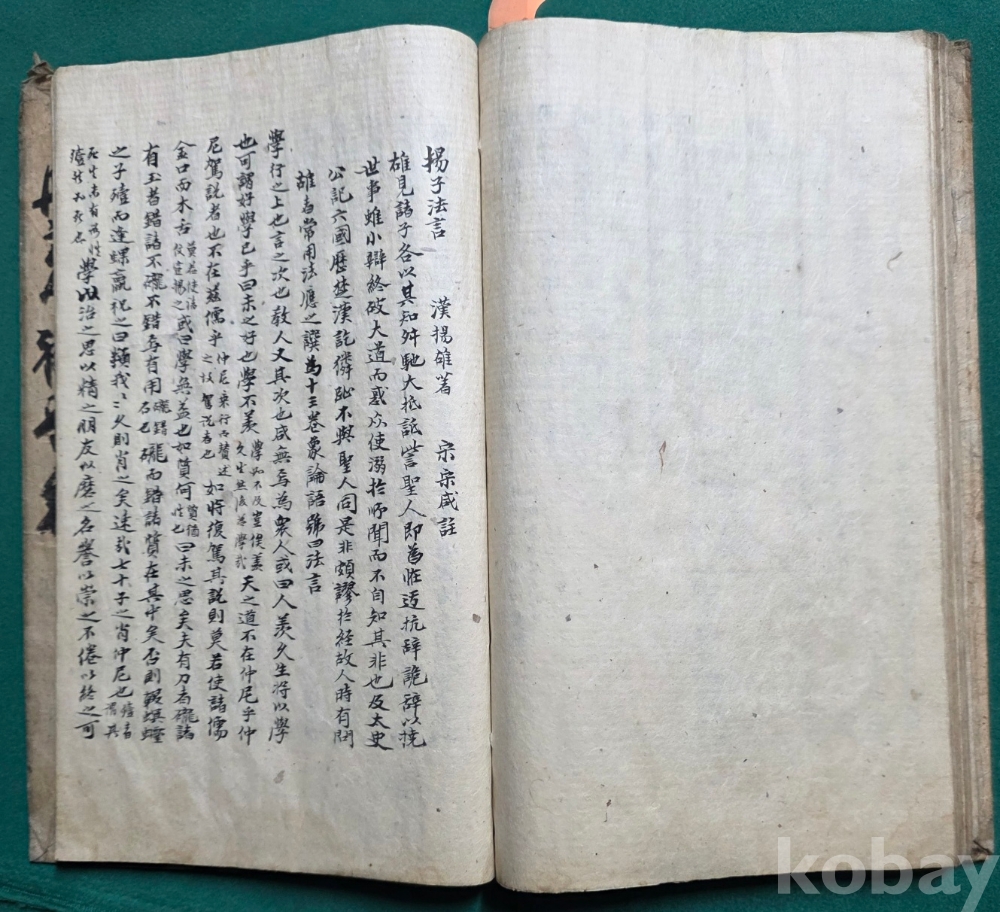 揚子法言 漢揚雄著 宋宋咸註
雄見諸子各以其知舛馳大抵詆訾聖人即為怪迂抗辭詭辭以撓
世事雖小辯終破大道而惑众使溺於所聞而不自知其非也及太史
公記六國歷楚漢訖獜趾不與聖人同是非頗謬於経故人時有問
雄者常用法應之譔為十三卷象論語號曰法言
學行之上也言之次也敎人又其次也咸無焉為衆人或曰人羨久生將以學
也可謂好學已乎曰未之好也學不羨 天之道不在仲尼乎仲
尼駕說者也不在玆儒乎 如將復駕其說則莫若使諸儒
金口而木舌 莫若使諸儒宣揚之 或曰學無益也如質何 曰未之思矣夫有刀者礲諸
有玉者錯諸不礲不錯焉有用 礲錯石也 礲而錯諸質在其中矣否則輟螟蛉
之子殪而逢蜾蠃祝之曰類我〻〻久則肖之矣速哉七十子之肖仲尼也
學以治之思以精之朋友以磨之名譽以崇之不倦以終之可
kobay